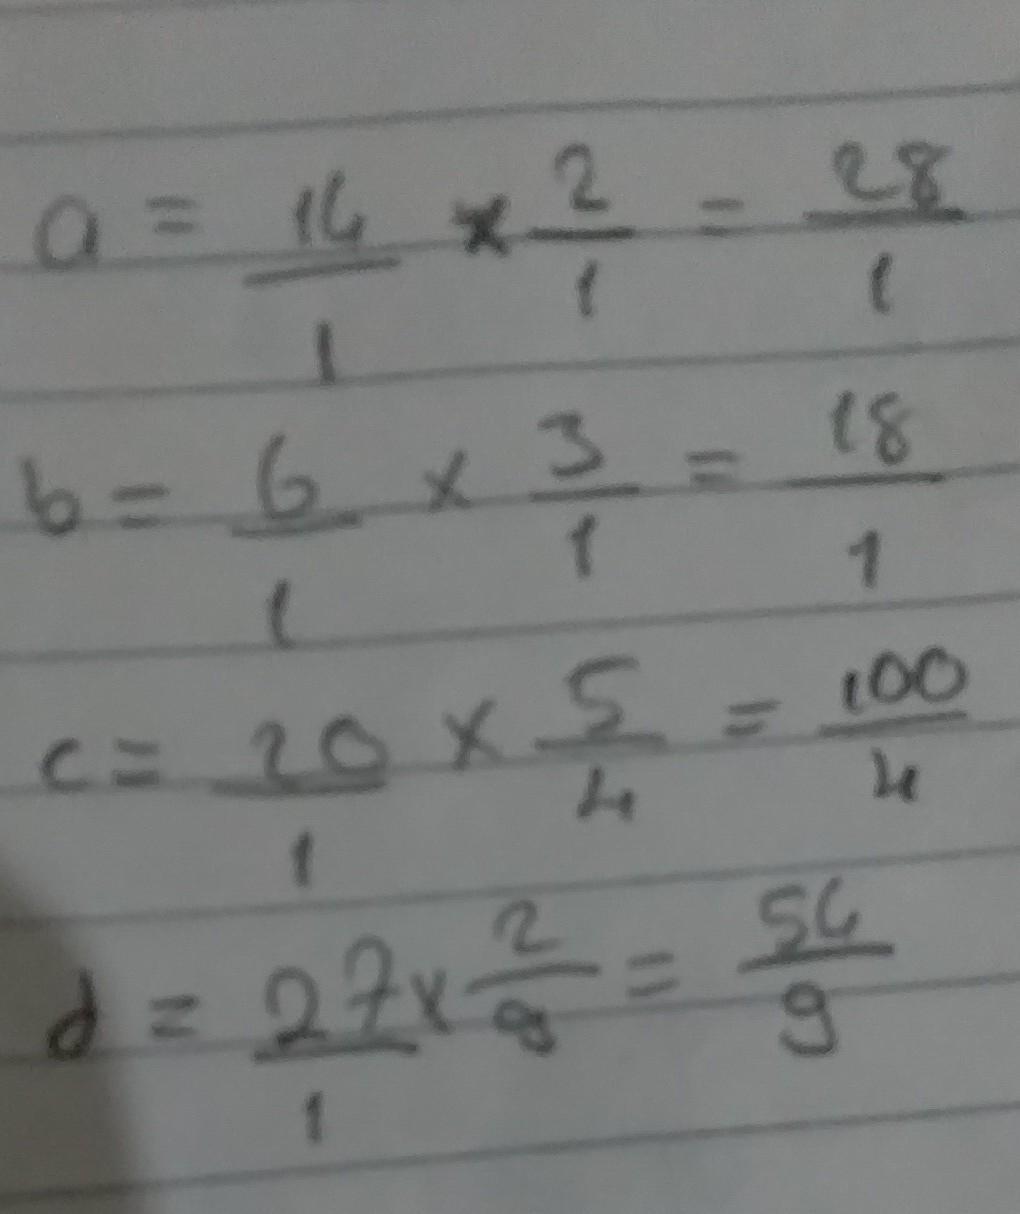 a = 14/1 × 2/1 = 28/1
b = 6/1 × 3/1 = 18/1
c = 20/1 × 5/4 = 100/4
d = 27/1 × 2/9 = 54/9